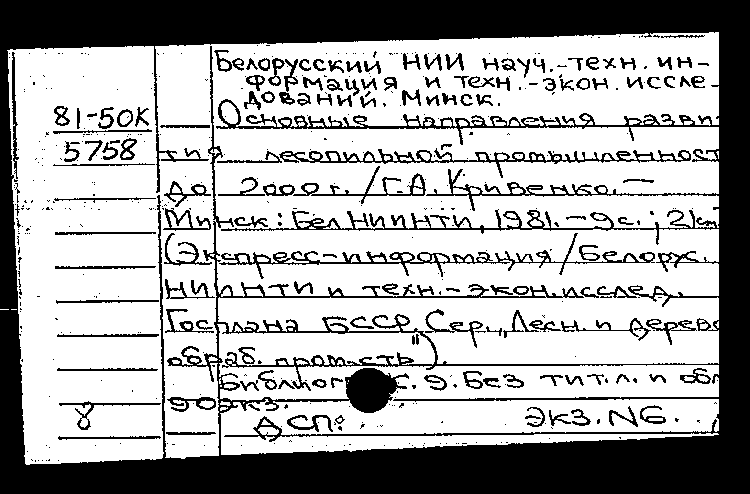 Белорусский НИИ науч.-техн. ин-
формация и техн.-экон. иссле-
дований. Минск.
81-50К
5758
Основные направления разви-
тия лесопильной промышленност
до 2000 г. / Г.А. Кривенко. —
Минск: БелНИИНТИ, 1981. - 9 с.; 21 см
(Экспресс-информация / Белорус.
НИИНТИ и техн.-экон. исслед.
Госплана БССР. Сер. „Лесн. и дерево
обраб. пром-сть").
Библиогр. с. 9. Без тит. л. и обл
90 экз.
8
ДСП: Экз. N6.